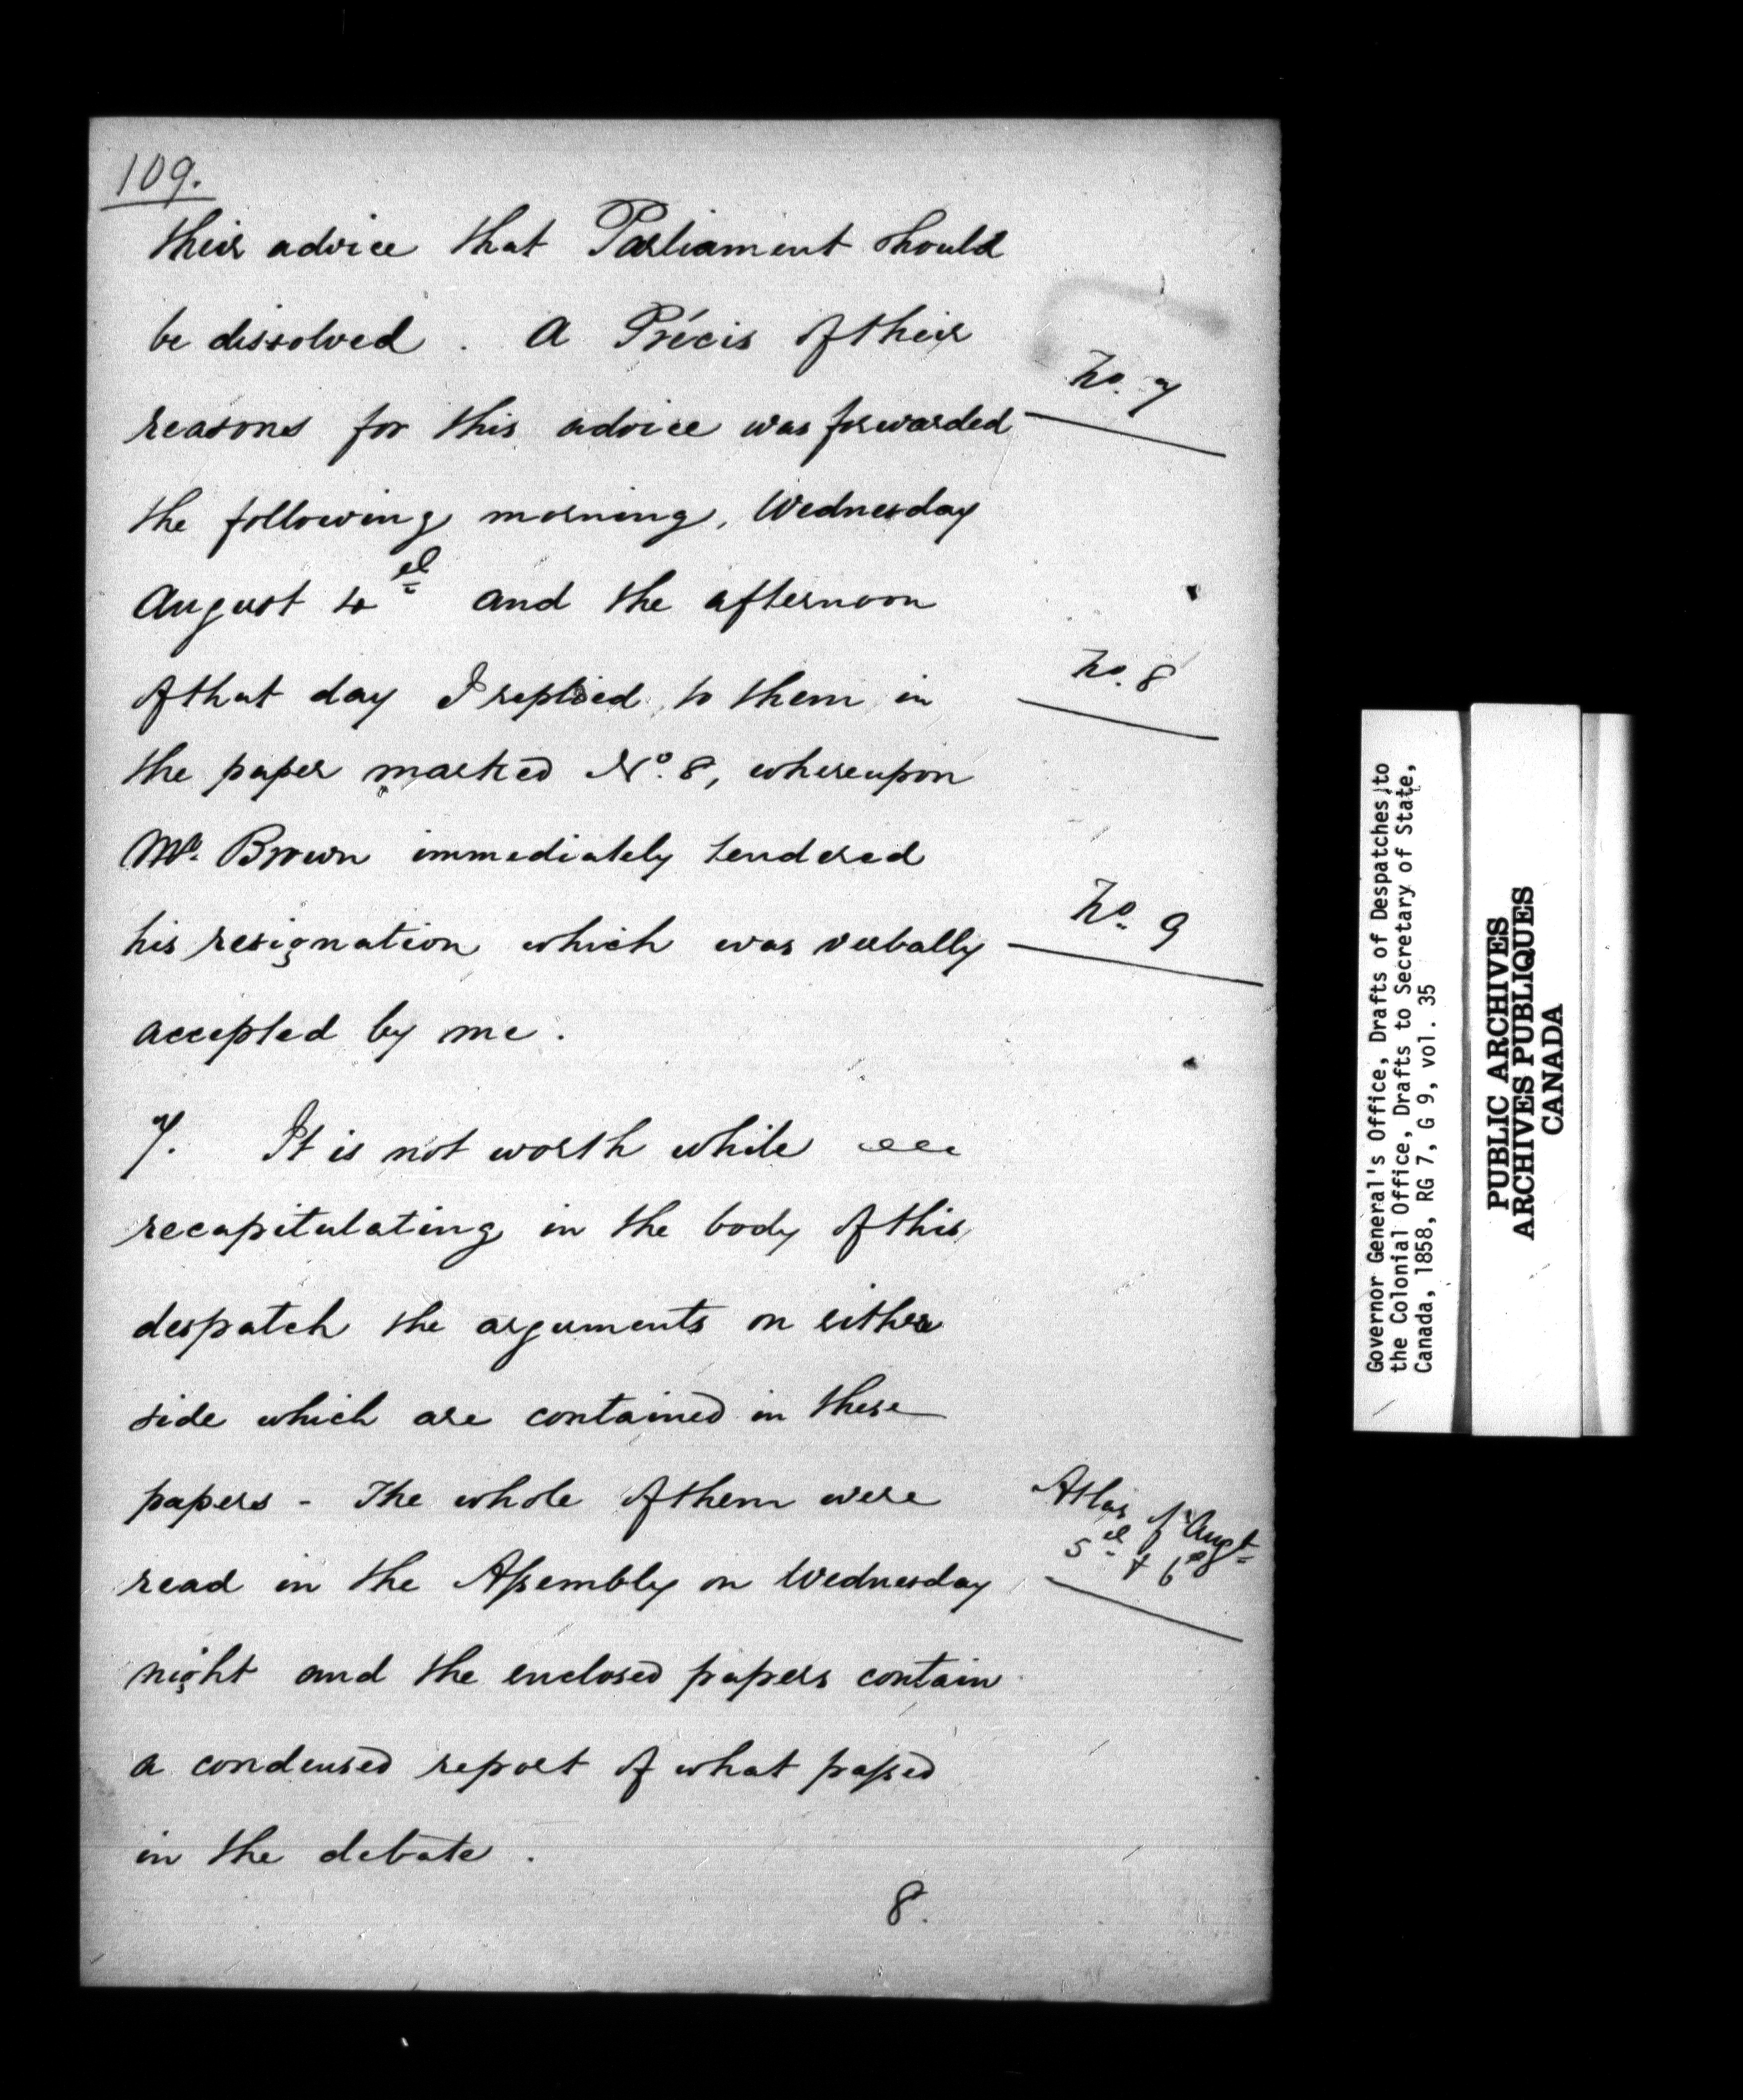 109.
their advice that Parliament should
be dissolved. A Précis of their
No. 7
reasons for this advice was forwarded
the following morning, Wednesday
August 4th and the afternoon
No. 8
of that day I replied to them in
the paper marked No. 8, whereupon
Mr. Brown immediately tendered
No. 9
his resignation which was verbally
accepted by me.
7. It is not worth while
recapitulating in the body of this
despatch the arguments on either
side which are contained in these
papers - The whole of them were
Atlas of Augt
5th & 6th
read in the Assembly on Wednesday
night and the enclosed papers contain
a condensed report of what passed
in the debate.
8.
Governor General's Office, Drafts of Despatches to
the Colonial Office, Drafts to Secretary of State,
Canada, 1858, RG 7, G 9, vol. 35
PUBLIC ARCHIVES
ARCHIVES PUBLIQUES
CANADA